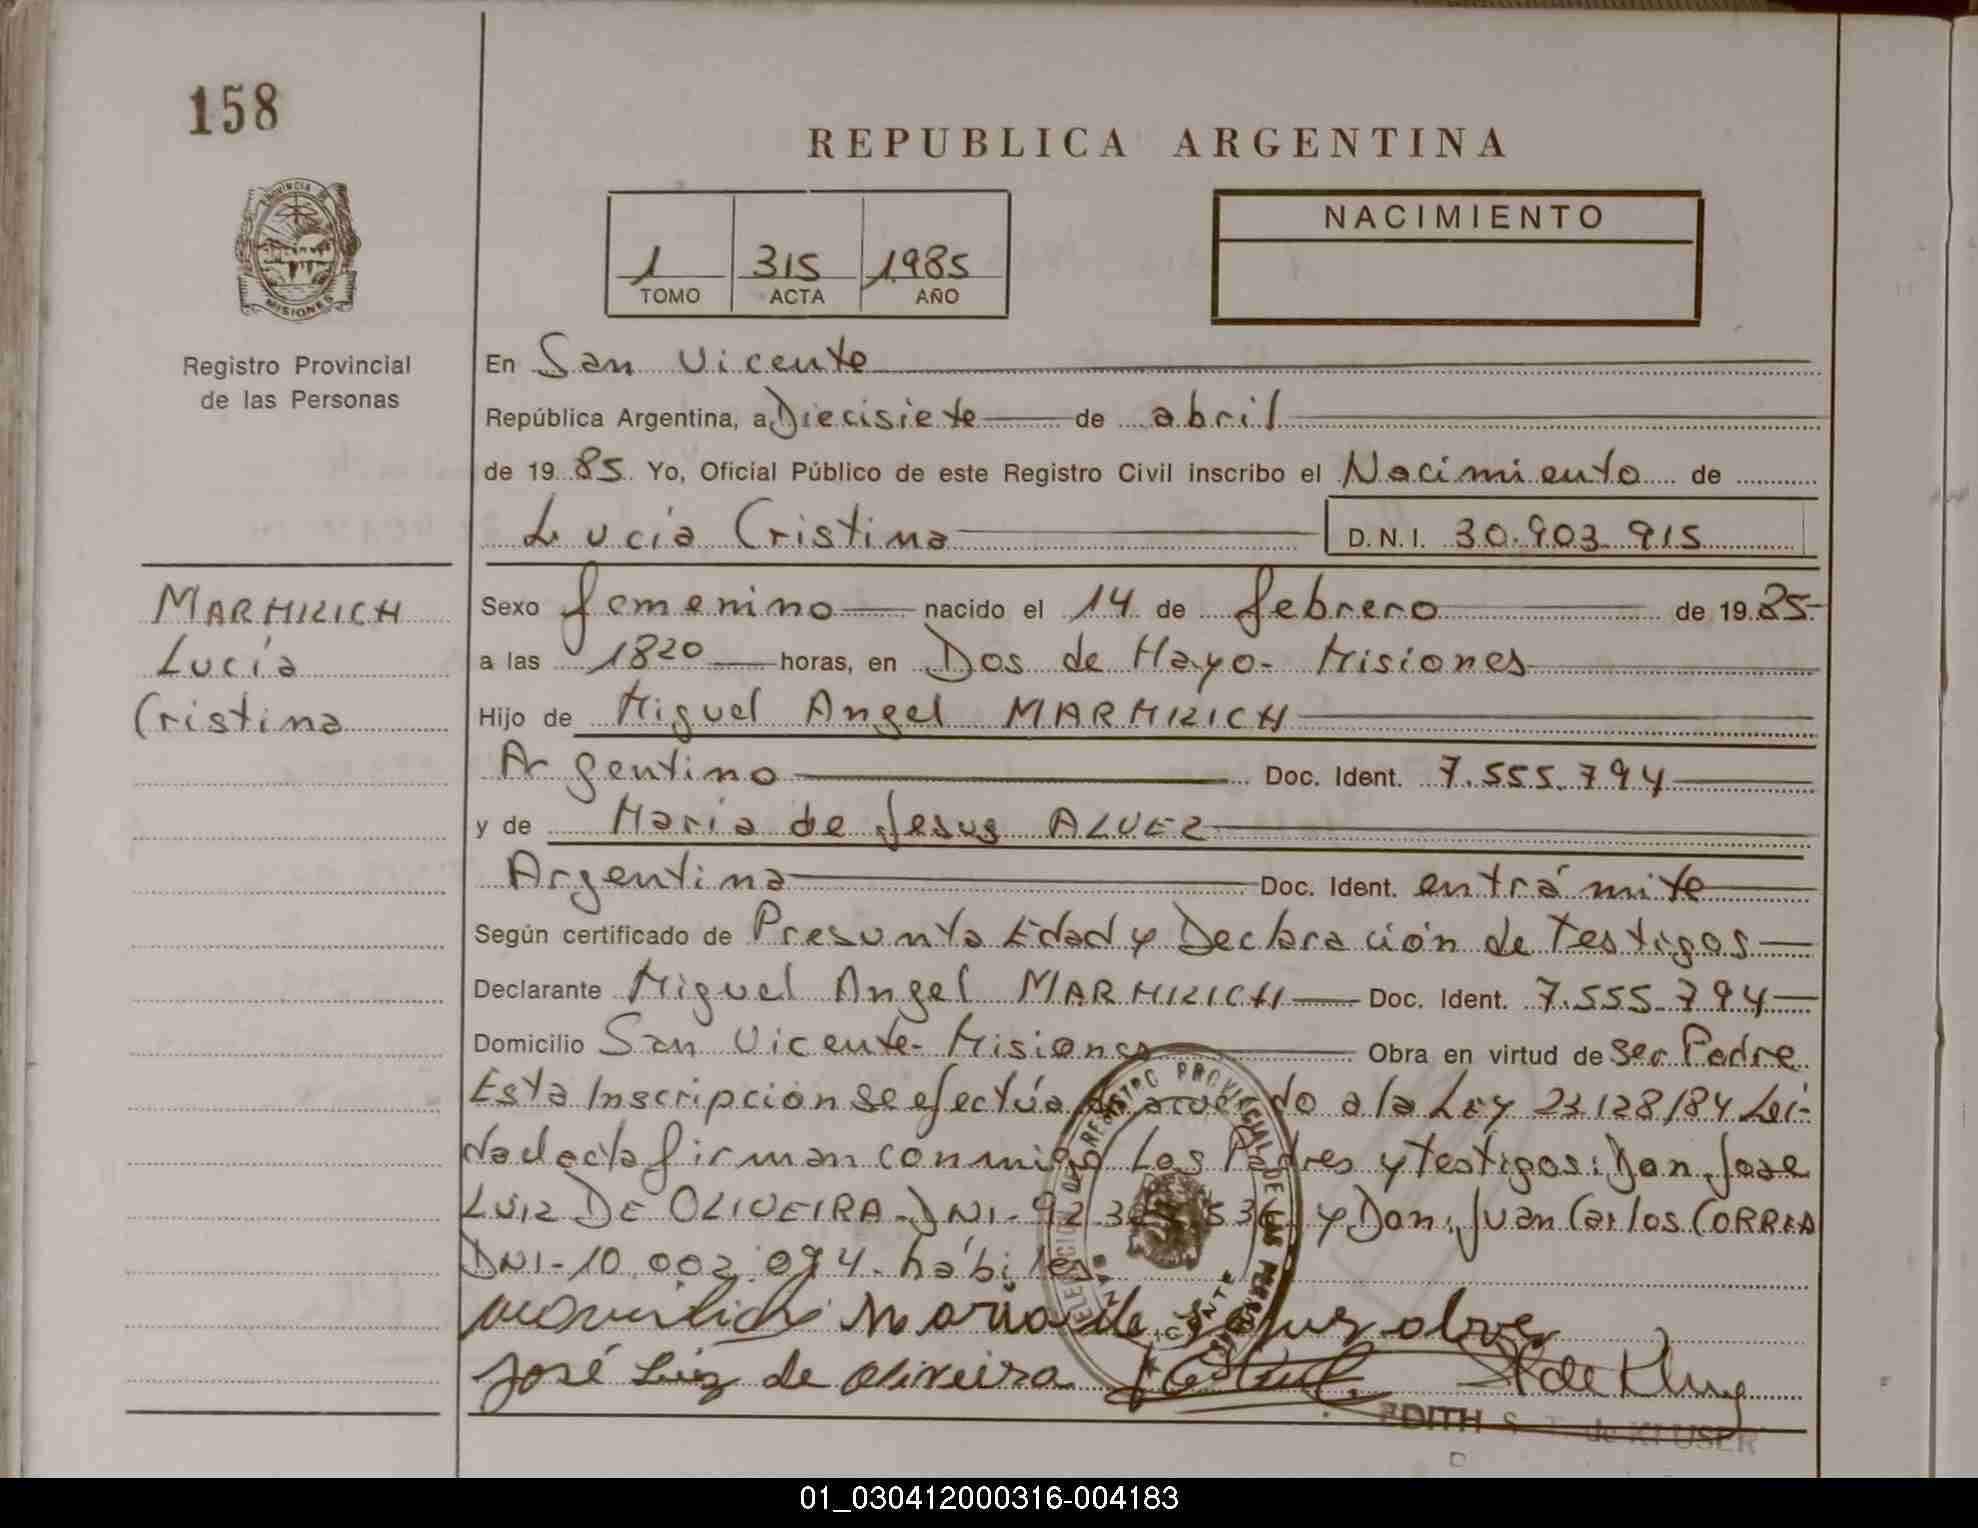 158
REPUBLICA ARGENTINA
PROVINCIA DE
MISIONES
1 315 1985
TOMO ACTA AÑO
NACIMIENTO
Registro Provincial
de las Personas
En San Vicente
República Argentina, a Diecisiete de abril
de 1985 Yo, Oficial Público de este Registro Civil inscribo el Nacimiento de
Lucía Cristina D.N.I. 30.903.915
MARMILICH
Lucía
Cristina
Sexo femenino nacido el 14 de febrero de 1985-
a las 1820 horas, en Dos de Mayo- Misiones
Hijo de Miguel Angel MARMILICH
Argentino Doc. Ident. 7.555.794
y de María de Jesus ALVEZ
Argentina Doc. Ident. en trámite
Según certificado de Presunta Edad y Declaración de Testigos
Declarante Miguel Angel MARMILICH Doc. Ident. 7.555.794
Domicilio San Vicente- Misiones Obra en virtud de ser Padre
Esta Inscripción se efectúa de acuerdo a la LEY 23.128/84 Leí-
da el acta firman conmigo Los Padres y testigos: Don Jose
LUIZ DE OLIVEIRA-DNI-92 y Don Juan Carlos CORREA
DNI-10.002.094- hábiles
Marmilich Maria de Jesus alves
José Luiz de oliveira
EDITH S. de KLUSER
01_030412000316-004183